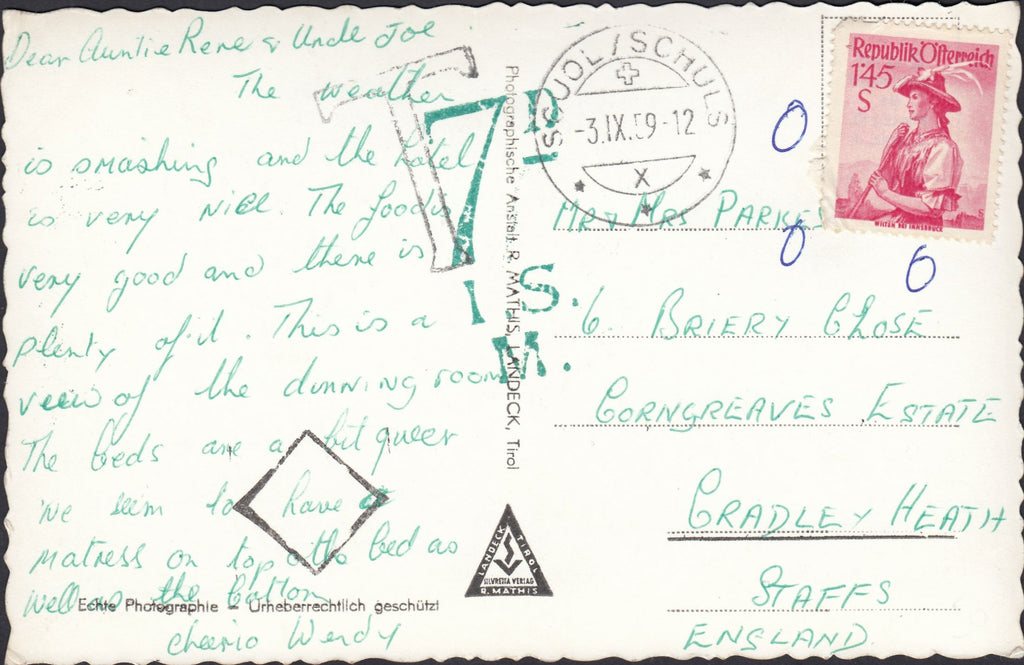 Dear Auntie Rene & Uncle Joe
The weather
is smashing and the hotel
is very nice. The food is
very good and there is
plenty of it. This is a
view of the dinning room
The beds are a bit queer
we seem to have a
matress on top o the bed as
well as the bottom
cheerio Wendy
Echte Photographie – Urheberrechtlich geschützt
T
7D.
I.S.
M.
Photographische Anstalt R. MATHIS, LANDECK, Tirol
LANDECK TIROL
SILVRETTA VERLAG
R. MATHIS
SCUOL/SCHULS
-3.IX.59-12
X
Republik Österreich
1'45
S
WILTEN BEI INNSBRUCK
S
0
0
0
MR & MRS PARKES
6. BRIERY CLOSE
CORNGREAVES ESTATE
CRADLEY HEATH
STAFFS
ENGLAND.